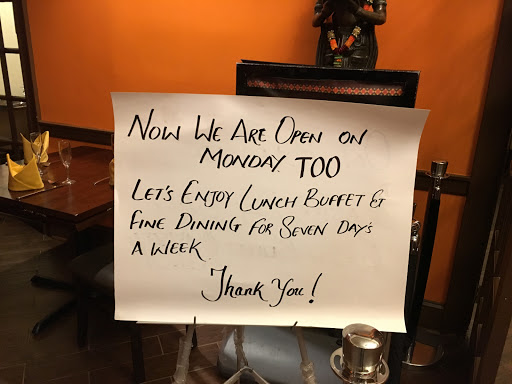 Now We Are Open on
Monday TOO
Let's Enjoy Lunch Buffet &
Fine Dining for Seven Day's
A Week
Thank You!